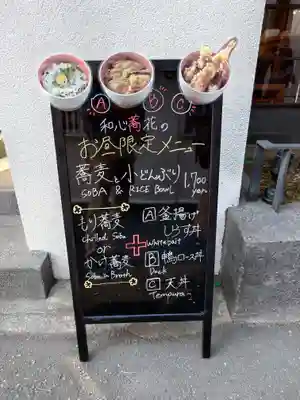 A B C
和心蕎花の
お昼限定メニュー
蕎麦と小どんぶり 1,700
SOBA & RICE BOWL yen
もり蕎麦
Chilled Soba
or
かけ蕎麦
Soba in Broth
+
A 釜揚げ
しらす丼
Whitebait
B 鴨ロース丼
Duck
C 天丼
Tempura